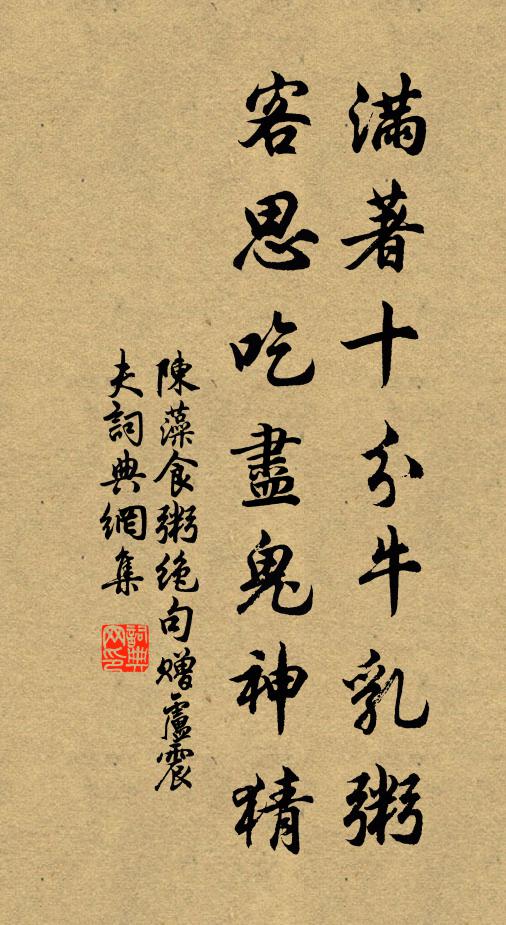 滿著十分牛乳粥
客思吃盡鬼神猜
陳藻食粥絶句贈盧震
夫詞典網集
詞典
网印